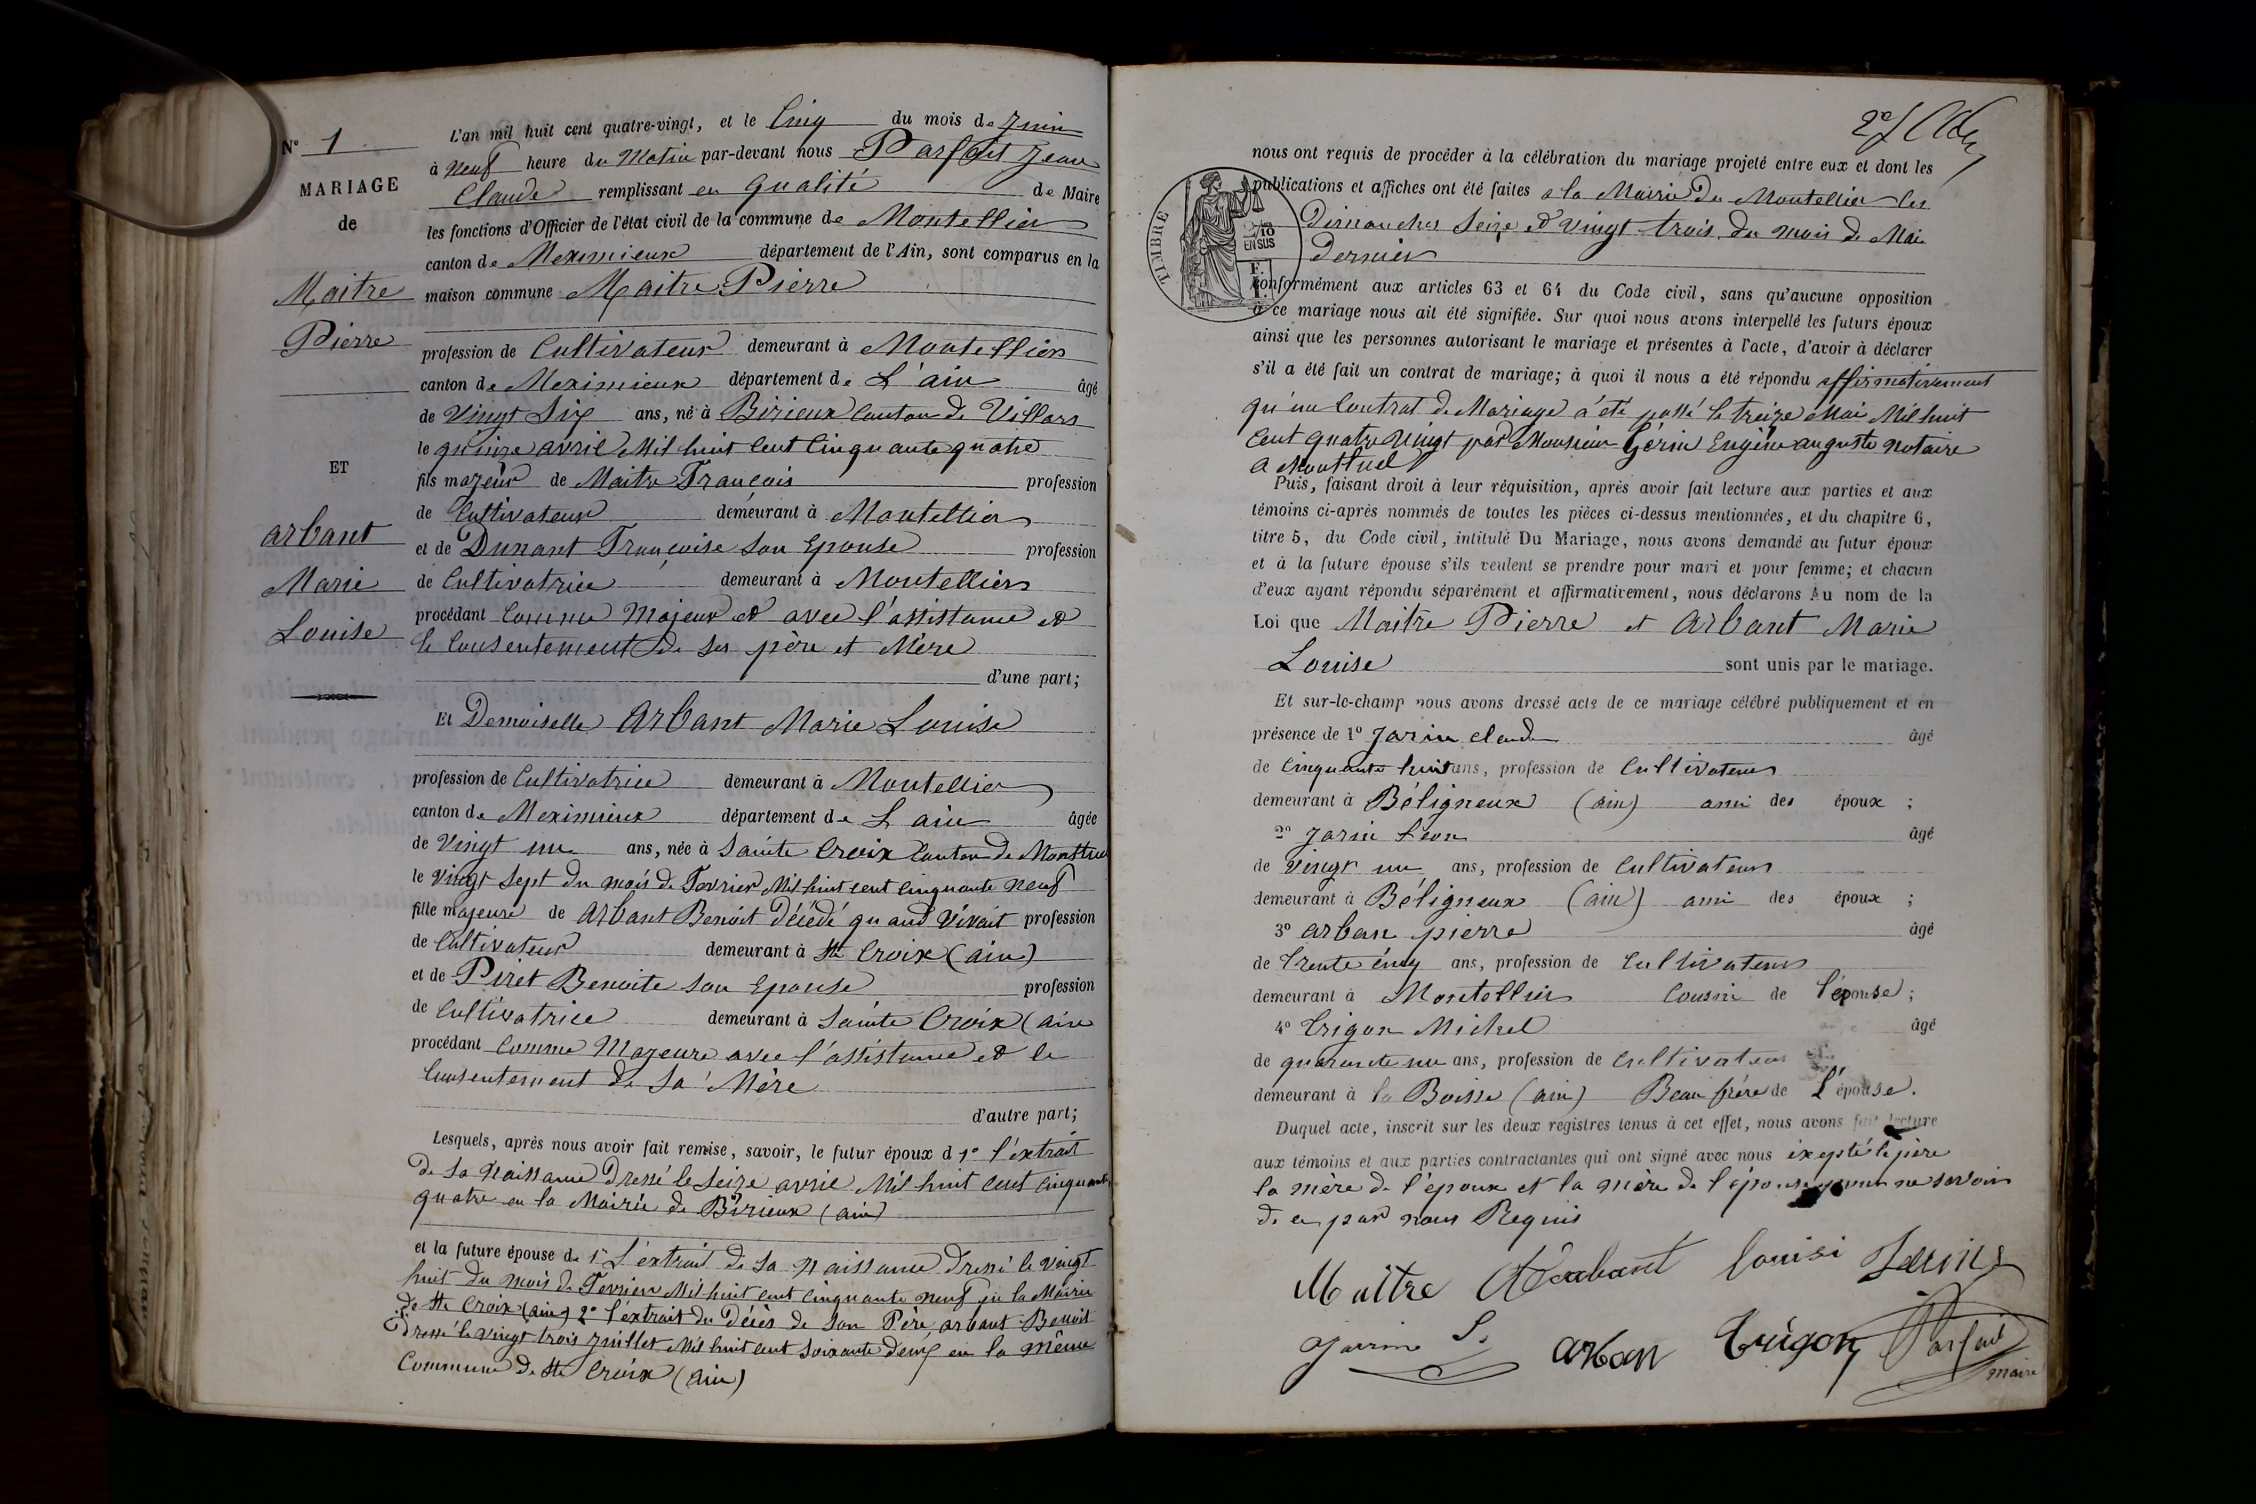 N° 1
MARIAGE
de
Maitre
Pierre
ET
Arbant
Marie
Louise
L'an mil huit cent quatre-vingt, et le Cinq du mois de Juin
à Neuf heure du Matin par-devant nous Parfait Jean
Claude remplissant en qualité de Maire
les fonctions d'Officier de l'état civil de la commune de Montellier
canton de Meximieux département de l'Ain, sont comparus en la
maison commune Maitre Pierre
profession de Cultivateur demeurant à Montellier
canton de Meximieux département de L'ain âgé
de Vingt Six ans, né à Birieux Canton de Villars
le quinze avril Mil huit Cent Cinquante quatre
fils majeur de Maitre François profession
de Cultivateur demeurant à Montellier
et de Dunant Françoise Son Epouse profession
de Cultivatrice demeurant à Montellier
procédant Comme Majeur et avec l'assistance et
le Consentement de ses père et Mère
d'une part;
Et Demoiselle Arbant Marie Louise
profession de Cultivatrice demeurant à Montellier
canton de Meximieux département de L'ain âgée
de Vingt un ans, née à Sainte Croix Canton de Montluel
le Vingt Sept du mois de Fevrier Mil huit cent cinquante neuf
fille majeure de Arbant Benoit Décédé quand Vivait profession
de Cultivateur demeurant à Ste Croix (ain)
et de Piret Benoite Son Epouse profession
de Cultivatrice demeurant à Sainte Croix (ain
procédant Comme Majeure avec l'assistance et le
Consentement de Sa Mère
d'autre part;
Lesquels, après nous avoir fait remise, savoir, le futur époux d 1° l'extrait
de Sa Naissance Dressé le Seize avril Mil huit cent cinquante
quatre en la Mairie de Birieux (ain)
et la future épouse de 1° L'extrait de Sa Naissance Dressé le Vingt
huit du mois de Fevrier Mil huit cent cinquante neuf en la Mairie
de Ste Croix (ain) 2° l'extrait du Décès de Son Père arbant Benoit
Dressé le Vingt trois Juillet Mil huit cent Soixante deux en la même
Commune de Ste Croix (ain)
2e f
nous ont requis de procéder à la célébration du mariage projeté entre eux et dont les
publications et affiches ont été faites a la Mairie du Montellier les
Dimanches Seize et Vingt trois du mois de Mai
Dernier
TIMBRE
2/10
EN SUS
conformément aux articles 63 et 64 du Code civil, sans qu'aucune opposition
à ce mariage nous ait été signifiée. Sur quoi nous avons interpellé les futurs époux
ainsi que les personnes autorisant le mariage et présentes à l'acte, d'avoir à déclarer
s'il a été fait un contrat de mariage; à quoi il nous a été répondu affirmativement
qu'un Contrat de Mariage a été passé le treize Mai Mil huit
Cent quatre Vingt par Monsieur Gérin Eugène auguste Notaire
a Montluel
Puis, faisant droit à leur réquisition, après avoir fait lecture aux parties et aux
témoins ci-après nommés de toutes les pièces ci-dessus mentionnées, et du chapitre 6,
titre 5, du Code civil, intitulé Du Mariage, nous avons demandé au futur époux
et à la future épouse s'ils veulent se prendre pour mari et pour femme; et chacun
d'eux ayant répondu séparément et affirmativement, nous déclarons Au nom de la
Loi que Maitre Pierre et Arbant Marie
Louise sont unis par le mariage.
Et sur-le-champ nous avons dressé acte de ce mariage célébré publiquement et en
présence de 1° Jarin Claude âgé
de Cinquante huit ans, profession de Cultivateur
demeurant à Béligneux (ain) ami des époux ;
2° Jarin Léon âgé
de Vingt un ans, profession de Cultivateur
demeurant à Béligneux (ain) ami des époux ;
3° Arban pierre âgé
de trente cinq ans, profession de Cultivateur
demeurant à Montellier Cousin de l'épouse ;
4° Trigon Michel âgé
de quarante un ans, profession de Cultivateur
demeurant à la Boisse (ain) Beau frère de L'épouse.
Duquel acte, inscrit sur les deux registres tenus à cet effet, nous avons fait lecture
aux témoins et aux parties contractantes qui ont signé avec nous excepté le père
la mère de l'époux et la mère de l'épouse pour ne savoir
de ce par nous Requis
Maître Arbant Louise Jarin
Jarrin L. Arban Trigon Parfait
maire